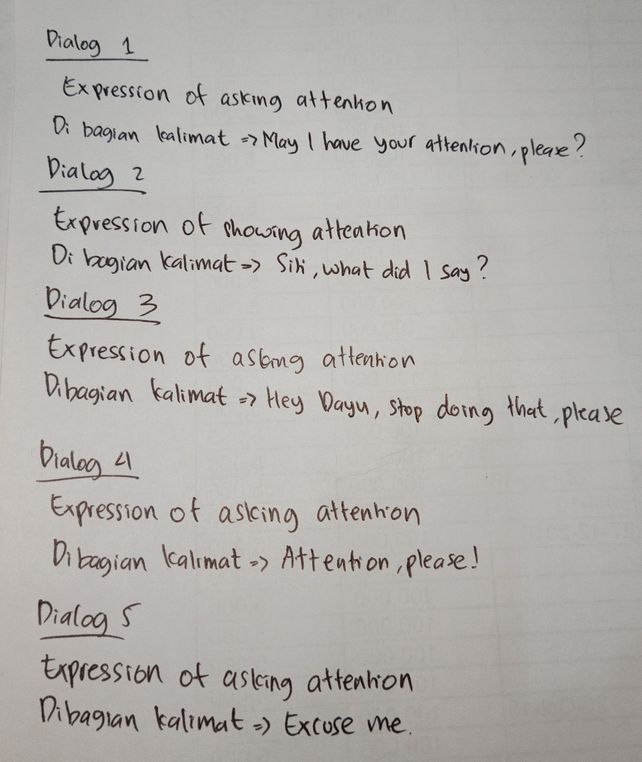 Dialog 1
Expression of asking attention
Di bagian kalimat => May I have your attention, please?
Dialog 2
Expression of showing attention
Di bagian kalimat => Siti, what did I say?
Dialog 3
Expression of asking attention
Dibagian kalimat => Hey Dayu, stop doing that, please
Dialog 4
Expression of asking attention
Dibagian kalimat => Attention, please!
Dialog 5
Expression of asking attention
Dibagian kalimat => Excuse me.